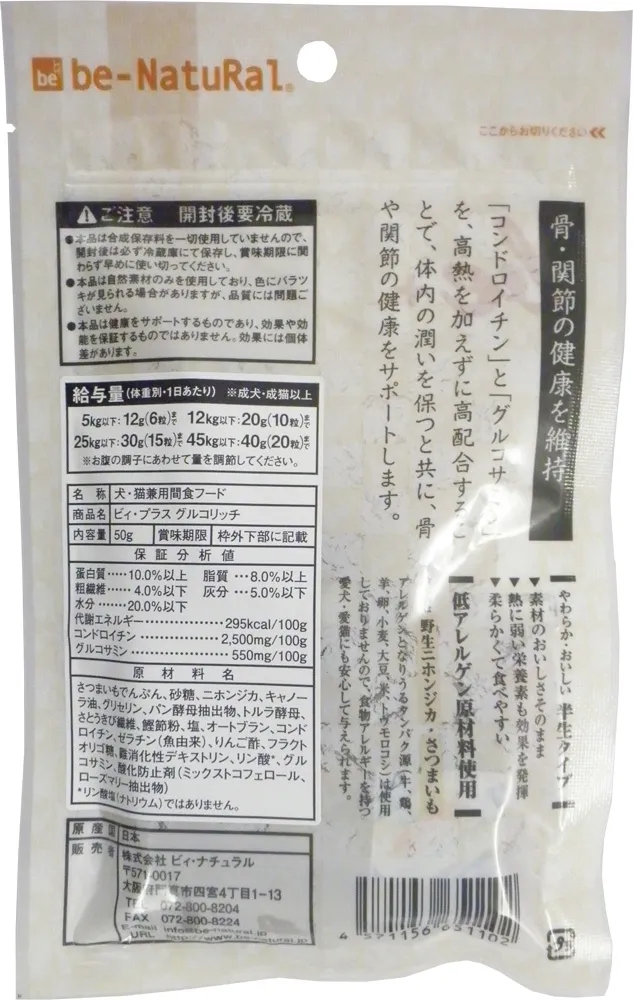 be be-NatuRal®
ここからお切りください
骨・関節の健康を維持
「コンドロイチン」と「グルコサミン」
を、高熱を加えずに高配合するこ
とで、体内の潤いを保つと共に、骨
や関節の健康をサポートします。
ご注意 開封後要冷蔵
●本品は合成保存料を一切使用していませんので、
開封後は必ず冷蔵庫にて保存し、賞味期限に関
わらず早めに使い切ってください。
●本品は自然素材のみを使用しており、色にバラツ
キが見られる場合がありますが、品質には問題ご
ざいません。
●本品は健康をサポートするものであり、効果や効
能を保証するものではありません。効果には個体
差があります。
給与量(体重別・1日あたり) ※成犬・成猫以上
5kg以下:12g(6粒)まで 12kg以下:20g(10粒)まで
25kg以下:30g(15粒)まで 45kg以下:40g(20粒)まで
※お腹の調子にあわせて量を調節してください。
名 称 犬・猫兼用間食フード
商品名 ビィ・プラス グルコリッチ
内容量 50g 賞味期限 枠外下部に記載
保証分析値
蛋白質……10.0%以上 脂質…8.0%以上
粗繊維……4.0%以下 灰分…5.0%以下
水分……20.0%以下
代謝エネルギー……295kcal/100g
コンドロイチン……2,500mg/100g
グルコサミン……550mg/100g
原材料名
さつまいもでんぷん、砂糖、ニホンジカ、キャノー
ラ油、グリセリン、パン酵母抽出物、トルラ酵母、
さとうきび繊維、鰹節粉、塩、オートブラン、コンド
ロイチン、ゼラチン(魚由来)、りんご酢、フラクト
オリゴ糖、難消化性デキストリン、リン酸*、グル
コサミン、酸化防止剤(ミックストコフェロール、
ローズマリー抽出物)
*リン酸塩(ナトリウム)ではありません。
やわらか・おいしい 半生タイプ
▼素材のおいしさそのまま
▼熱に弱い栄養素も効果を発揮
▼柔らかくて食べやすい
低アレルゲン原材料使用
野生ニホンジカ・さつまいも
アレルゲンとなりうるタンパク源(牛、鶏、
羊、卵、小麦、大豆、米、トウモロコシ)は使用
しておりませんので、食物アレルギーを持つ
愛犬・愛猫にも安心して与えられます。
原産国 日本
販売者 株式会社 ビィ・ナチュラル
〒571-0017
大阪府門真市四宮4丁目1-13
TEL 072-800-8204
FAX 072-800-8224
E-mail info@be-natural.jp
URL http://www.be-natural.jp
4 571156 651102